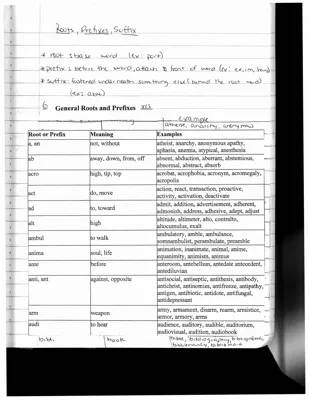 Roots, Prefixes, Suffix
* root = base word (ex: port)
* prefix = before the word, attach to front of word
* suffix: fastened underneath something else (behind the root word)
General Roots and Prefixes
example
atheist, anarchy, anonymous
Root or Prefix Meaning Examples
a, an not, without atheist, anarchy, anonymous apathy,
aphasia, anemia, atypical, anesthesia
ab away, down, from, off absent, abduction, aberrant, abstemious,
abnormal, abstract, absorb
acro high, tip, top acrobat, acrophobia, acronym, acromegaly,
acropolis
act do, move action, react, transaction, proactive,
activity, activation, deactivate
ad to, toward admit, addition, advertisement, adherent,
admonish, address, adhesive, adept, adjust
alt high altitude, altimeter, alto, contralto,
altocumulus, exalt
ambul to walk ambulatory, amble, ambulance,
somnambulist, perambulate, preamble
anima soul, life animation, inanimate, animal, anime,
equanimity, animists, animus
ante before anteroom, antebellum, antedate antecedent,
antediluvian
anti, ant against, opposite antisocial, antiseptic, antithesis, antibody,
antichrist, antinomies, antifreeze, antipathy,
antigen, antibiotic, antidote, antifungal,
antidepressant
arm weapon army, armament, disarm, rearm, armistice,
armor, armory, arms
audi to hear audience, auditory, audible, auditorium,
audiovisual, audition, audiobook
bib. book bible, bibliography,